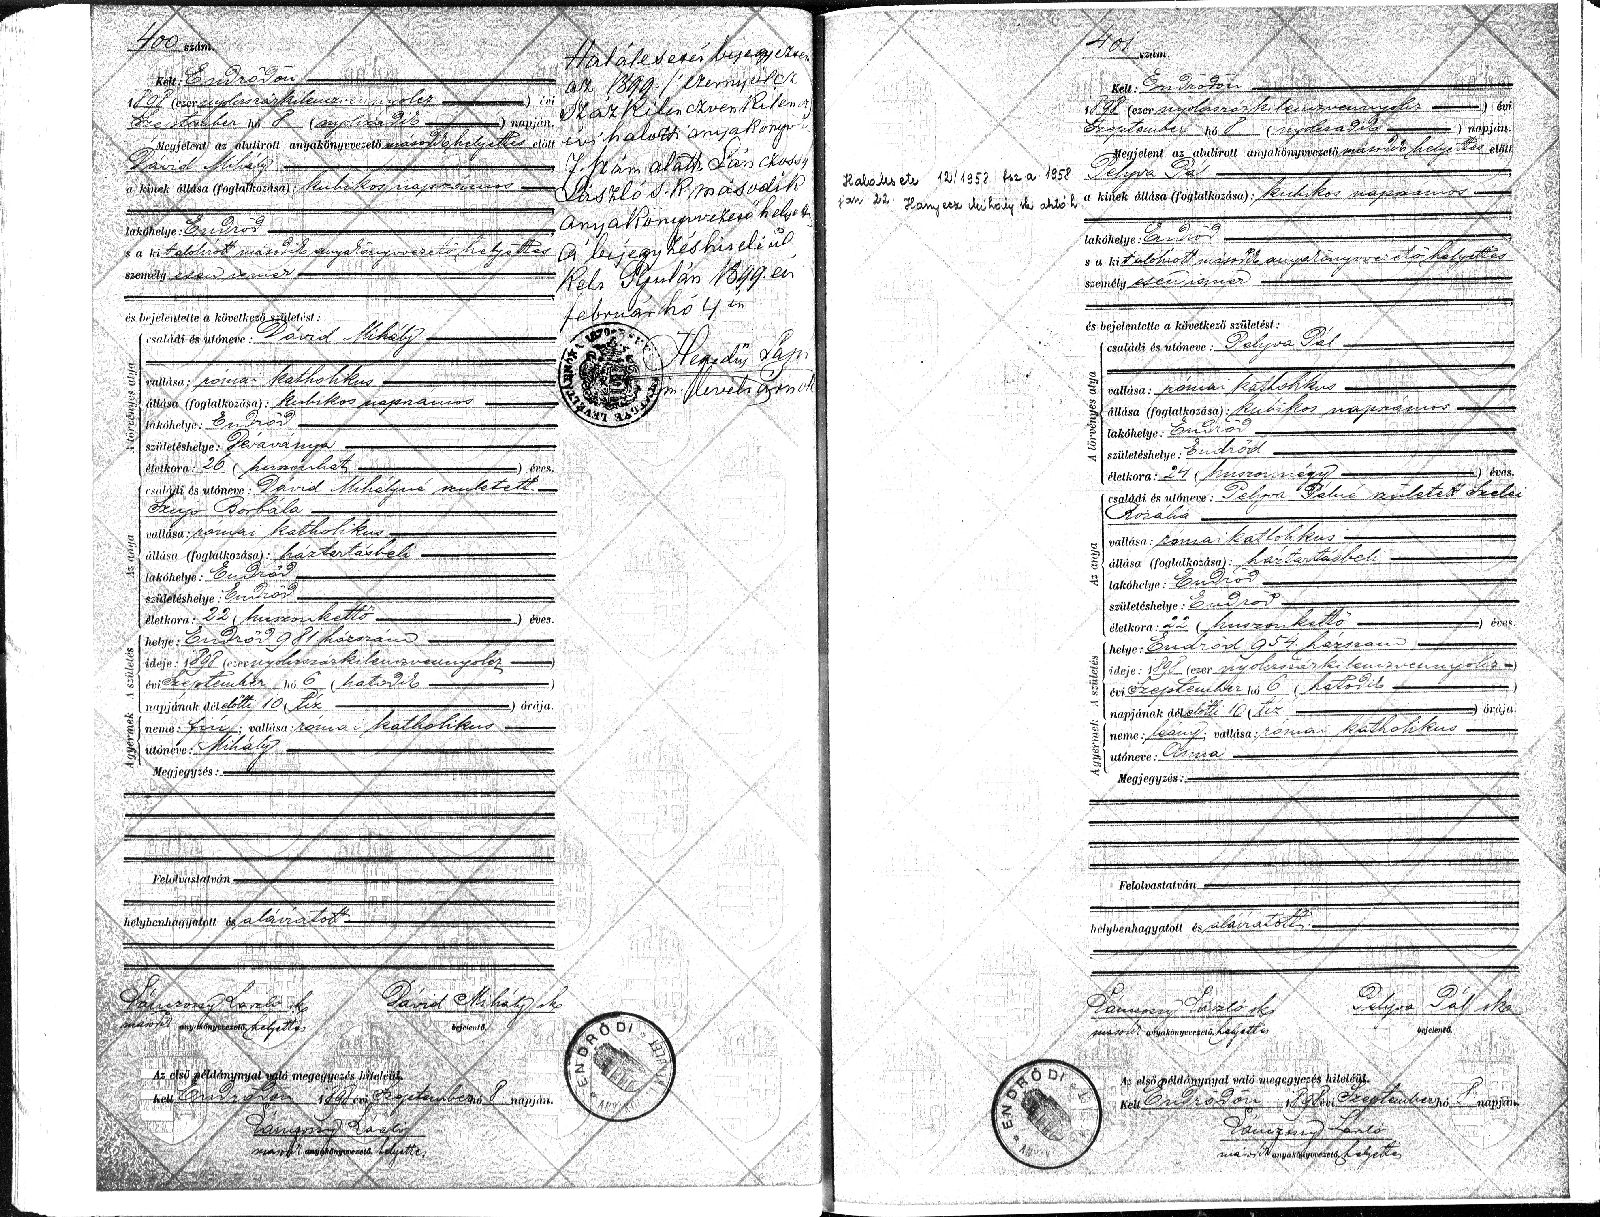 400 szám.
Kelt: Endrődön
1898 (ezer nyolczszázkilenczvennyolcz ) évi
Szeptember hó 8 (nyolczadik ) napján.
Megjelent az alulirott anyakönyvvezető második helyettes előtt
Dávid Mihály
a kinek állása (foglalkozása): kubikos napszámos
lakóhelye: Endrőd
s a kit alólirott második anyakönyvvezető helyettes
személyesen ismer
és bejelentette a következő születést:
A törvényes atya
családi és utóneve: Dávid Mihály
vallása: római katholikus
állása (foglalkozása): kubikos napszámos
lakóhelye: Endrőd
születéshelye: Dévaványa
életkora: 26 (huszonhat ) éves.
Az anya
családi és utóneve: Dávid Mihályné született
Borbála
vallása: római katholikus
állása (foglalkozása): háztartásbeli
lakóhelye: Endrőd
születéshelye: Endrőd
életkora: 22 (huszonkettő ) éves.
A születés
helye: Endrőd 981 házszám
ideje: 1898 (ezer nyolczszázkilenczvennyolcz )
évi Szeptember hó 6 (hatodik )
napjának délelőtti 10 (tiz ) órája.
A gyermek
neme: fiú; vallása: római katholikus
utóneve: Mihály
Megjegyzés:
Felolvastatván
helybenhagyatott és aláiratott
Lánczossy László sk
másod. anyakönyvvezető helyettes
Dávid Mihály sk
bejelentő.
Az első példánynyal való megegyezés hiteléül.
Kelt Endrődön 1898 évi Szeptember hó 8 napján.
Lánczossy László
másod. anyakönyvvezető helyettes
ENDRŐDI
Halálesetét bejegyeztem
az 1899 / ezernyolcz
száz kilenczvenkilencz
évi halotti anyakönyv
7. szám alatt Lánczossy
László s. k. második
anyakönyvvezető helyettes
A bejegyzés hiteléül
Kelt Gyulán 1899 évi
február hó 4 én
401 szám.
Kelt: Endrődön
1898 (ezer nyolczszázkilenczvennyolcz ) évi
Szeptember hó 8 (nyolczadik ) napján.
Megjelent az alulirott anyakönyvvezető második helyettes előtt
Pelyva Pál
a kinek állása (foglalkozása): kubikos napszámos
lakóhelye: Endrőd
s a kit alólirott második anyakönyvvezető helyettes
személyesen ismer
és bejelentette a következő születést:
A törvényes atya
családi és utóneve: Pelyva Pál
vallása: római katholikus
állása (foglalkozása): kubikos napszámos
lakóhelye: Endrőd
születéshelye: Endrőd
életkora: 24 (huszonnégy ) éves.
Az anya
családi és utóneve: Pelyva Pálné született Szelei
Rozália
vallása: római katholikus
állása (foglalkozása): háztartásbeli
lakóhelye: Endrőd
születéshelye: Endrőd
életkora: 22 (huszonkettő ) éves.
A születés
helye: Endrőd 954 házszám
ideje: 1898 (ezer nyolczszázkilenczvennyolcz )
évi Szeptember hó 6 (hatodik )
napjának délelőtti 10 (tiz ) órája.
A gyermek
neme: leány; vallása: római katholikus
utóneve: Anna
Megjegyzés:
Felolvastatván
helybenhagyatott és aláiratott
Lánczossy László sk
másod. anyakönyvvezető helyettes
Pelyva Pál sk
bejelentő.
Az első példánynyal való megegyezés hiteléül.
Kelt Endrődön 1898 évi Szeptember hó 8 napján.
Lánczossy László
másod. anyakönyvvezető helyettes
ENDRŐDI
Halálesete 12/1958 fsz a 1958
jan 22. Hanyecz Mihály